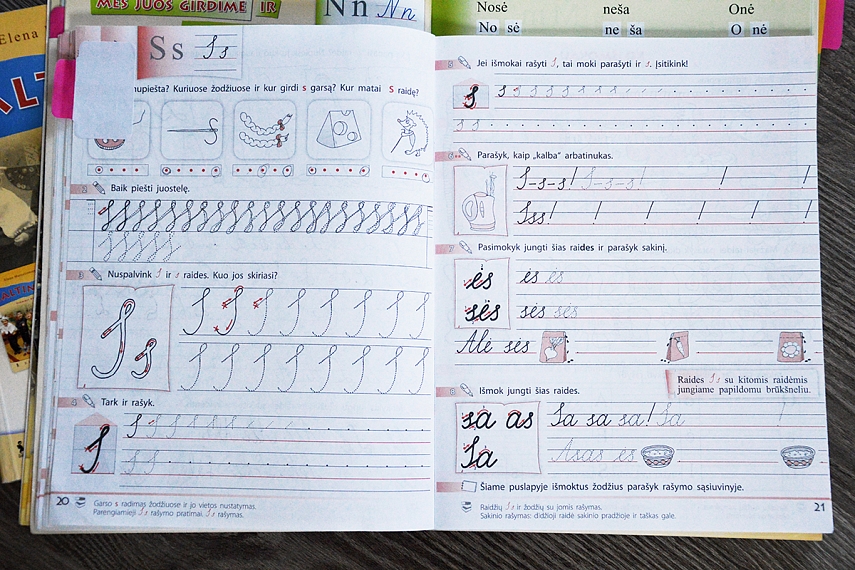 MES JUOS GIRDIME IR
N n N n
Nosė neša Onė
No sė ne ša O nė
Elena
S s S s
nupiešta? Kuriuose žodžiuose ir kur girdi s garsą? Kur matai S raidę?
2 Baik piešti juostelę.
3 Nuspalvink S ir s raides. Kuo jos skiriasi?
S s
4 Tark ir rašyk.
S S
20 Garso s radimas žodžiuose ir jo vietos nustatymas.
Parengiamieji S s rašymo pratimai. S s rašymas.
5 Jei išmokai rašyti S, tai moki parašyti ir s. Įsitikink!
s s s
6 Parašyk, kaip „kalba“ arbatinukas.
S-s-s! S-s-s! !
Sss! ! ! ! ! !
7 Pasimokyk jungti šias raides ir parašyk sakinį.
ės ės ės
sės sės sės
Alė sės
Raides S s su kitomis raidėmis
jungiame papildomu brūkšneliu.
8 Išmok jungti šias raides.
sa as Sa sa sa! Sa !
Sa Asas ės
Šiame puslapyje išmoktus žodžius parašyk rašymo sąsiuvinyje.
Raidžių S s ir žodžių su jomis rašymas.
Sakinio rašymas: didžioji raidė sakinio pradžioje ir taškas gale.
21